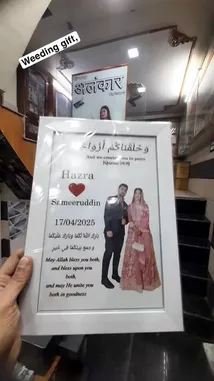 Weeding gift,
अलंकार
وَخَلَقْنَاكُمْ أَزْوَاجًا
And we created you in pairs
Hazra
Sameeruddin
17/04/2025
بارك الله لكما وبارك عليكما
و جمع بينكما في خير
May Allah bless you both,
and bless upon you
both,
and may He unite you
both in goodness